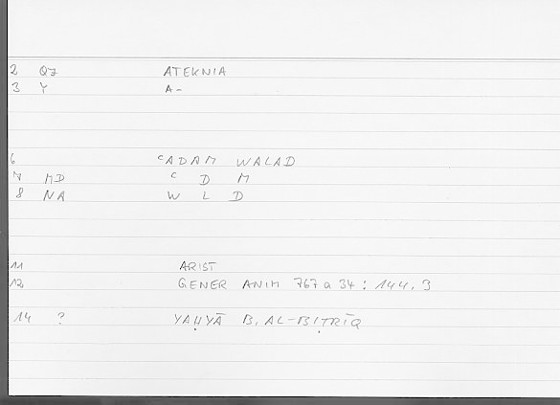 2 QZ ATEKNIA
3 Y A-
6 ʿADAM WALAD
7 MD ʿ D M
8 NA W L D
11 ARIST
12 GENER ANIM 767 a 34 : 144, 3
14 ? YAḤYĀ B. AL-BIṬRĪQ